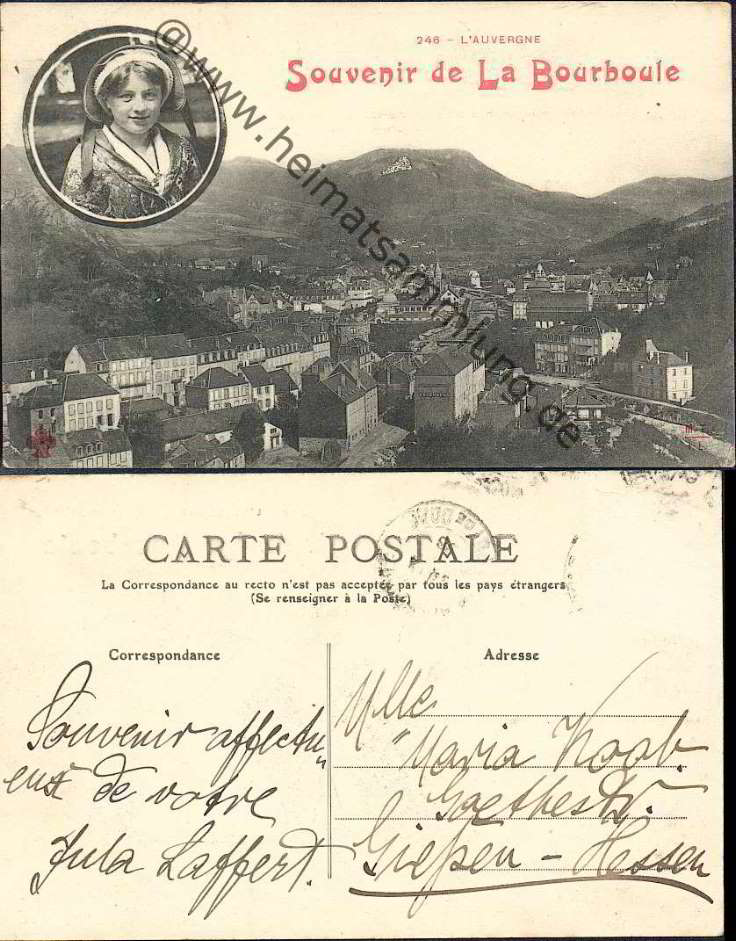 246 - L'AUVERGNE
Souvenir de La Bourboule
@www.heimatsammlung.de
CARTE POSTALE
La Correspondance au recto n'est pas acceptée par tous les pays étrangers
(Se renseigner à la Poste)
Correspondance
Adresse
Souvenir affectu
eux de votre
Jula Laffert.
Mlle
Maria Koob.
Goethestr.
Gießen - Hessen